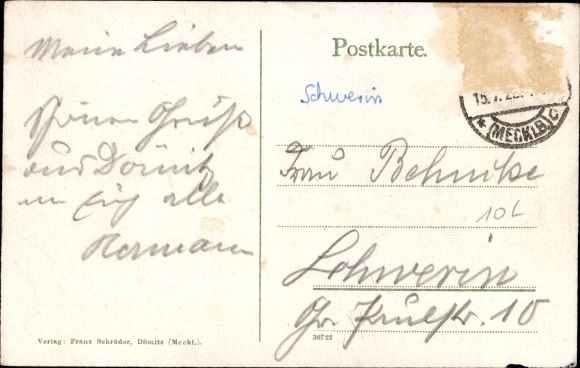 Meine Lieben
Postkarte.
Schwerin
15.7.22.
* (MECKLB) C
Grüße
aus Dömitz
an Euch alle
Hermann
Frau Behncke
10L
Schwerin
Gr. Paulstr. 10
Verlag: Franz Schröder, Dömitz (Meckl.).
30722